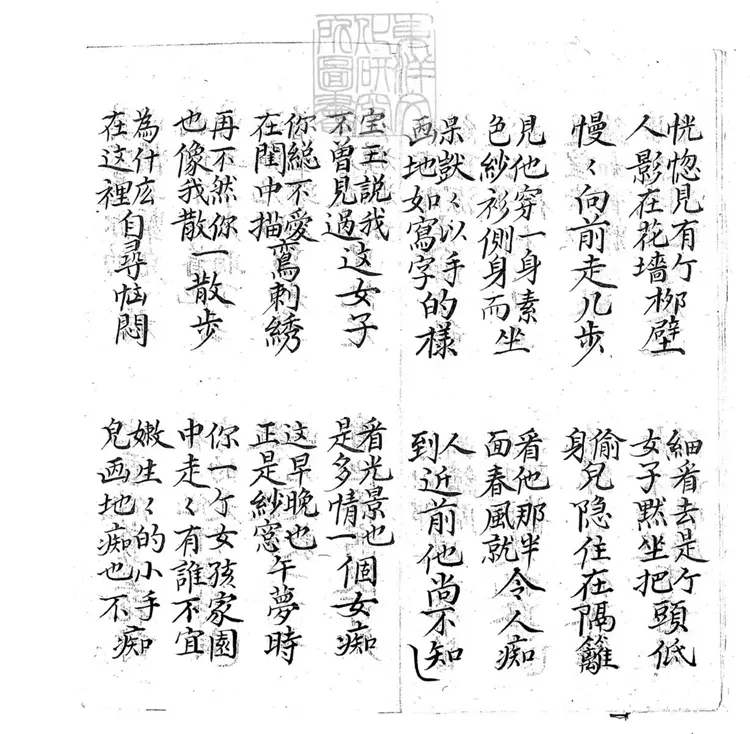 恍惚見有亇人影在花墙柳壁
細看去是亇女子黙坐把頭低
慢々向前走几步
偷身兒隐住在隔籬
見他穿一身素色紗衫側身而坐
看他那半面春風就令人痴
呆獃々以手画地如寫字的樣
人到近前他尚不知
宝玉說我不曾見過这女子
看光景也是多情一個女痴
你縂不愛在閨中描鸾刺綉
这早晚也正是紗窓午夢時
再不然你也像我散一散步
你一亇女孩家園中走々有誰不宜
為什庅在这裡自尋恼悶
嫩生々的小手兒画地痴也不痴
東洋文化研究所圖書